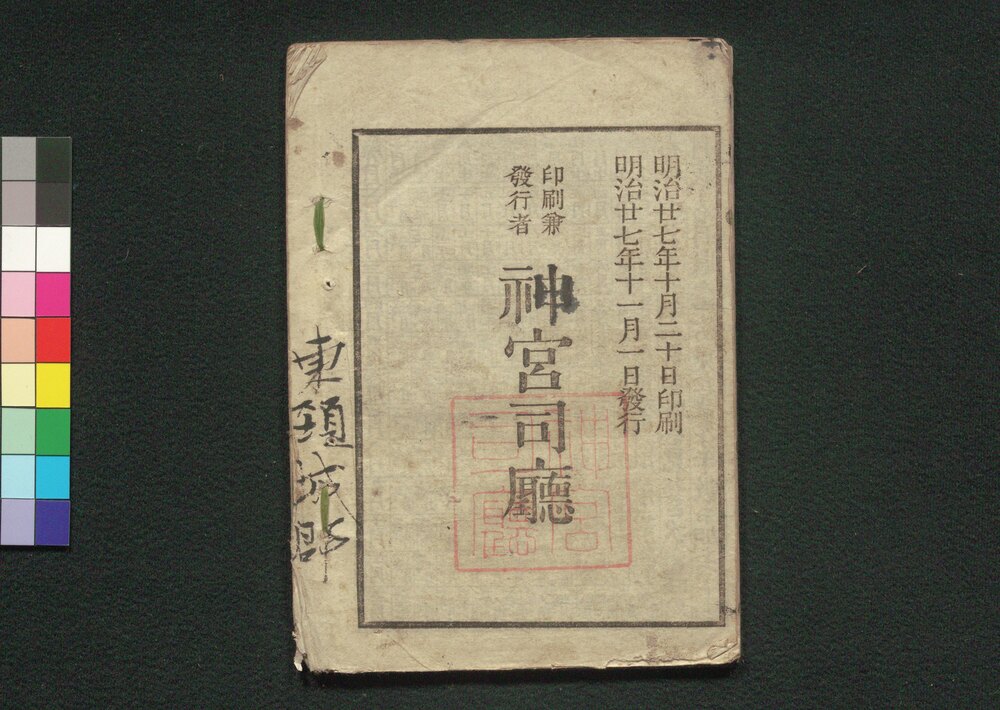 明治廿七年十月二十日印刷
明治廿七年十一月一日發行
印刷兼
發行者
神宮司廳
東頚城郡
神宮
司廳